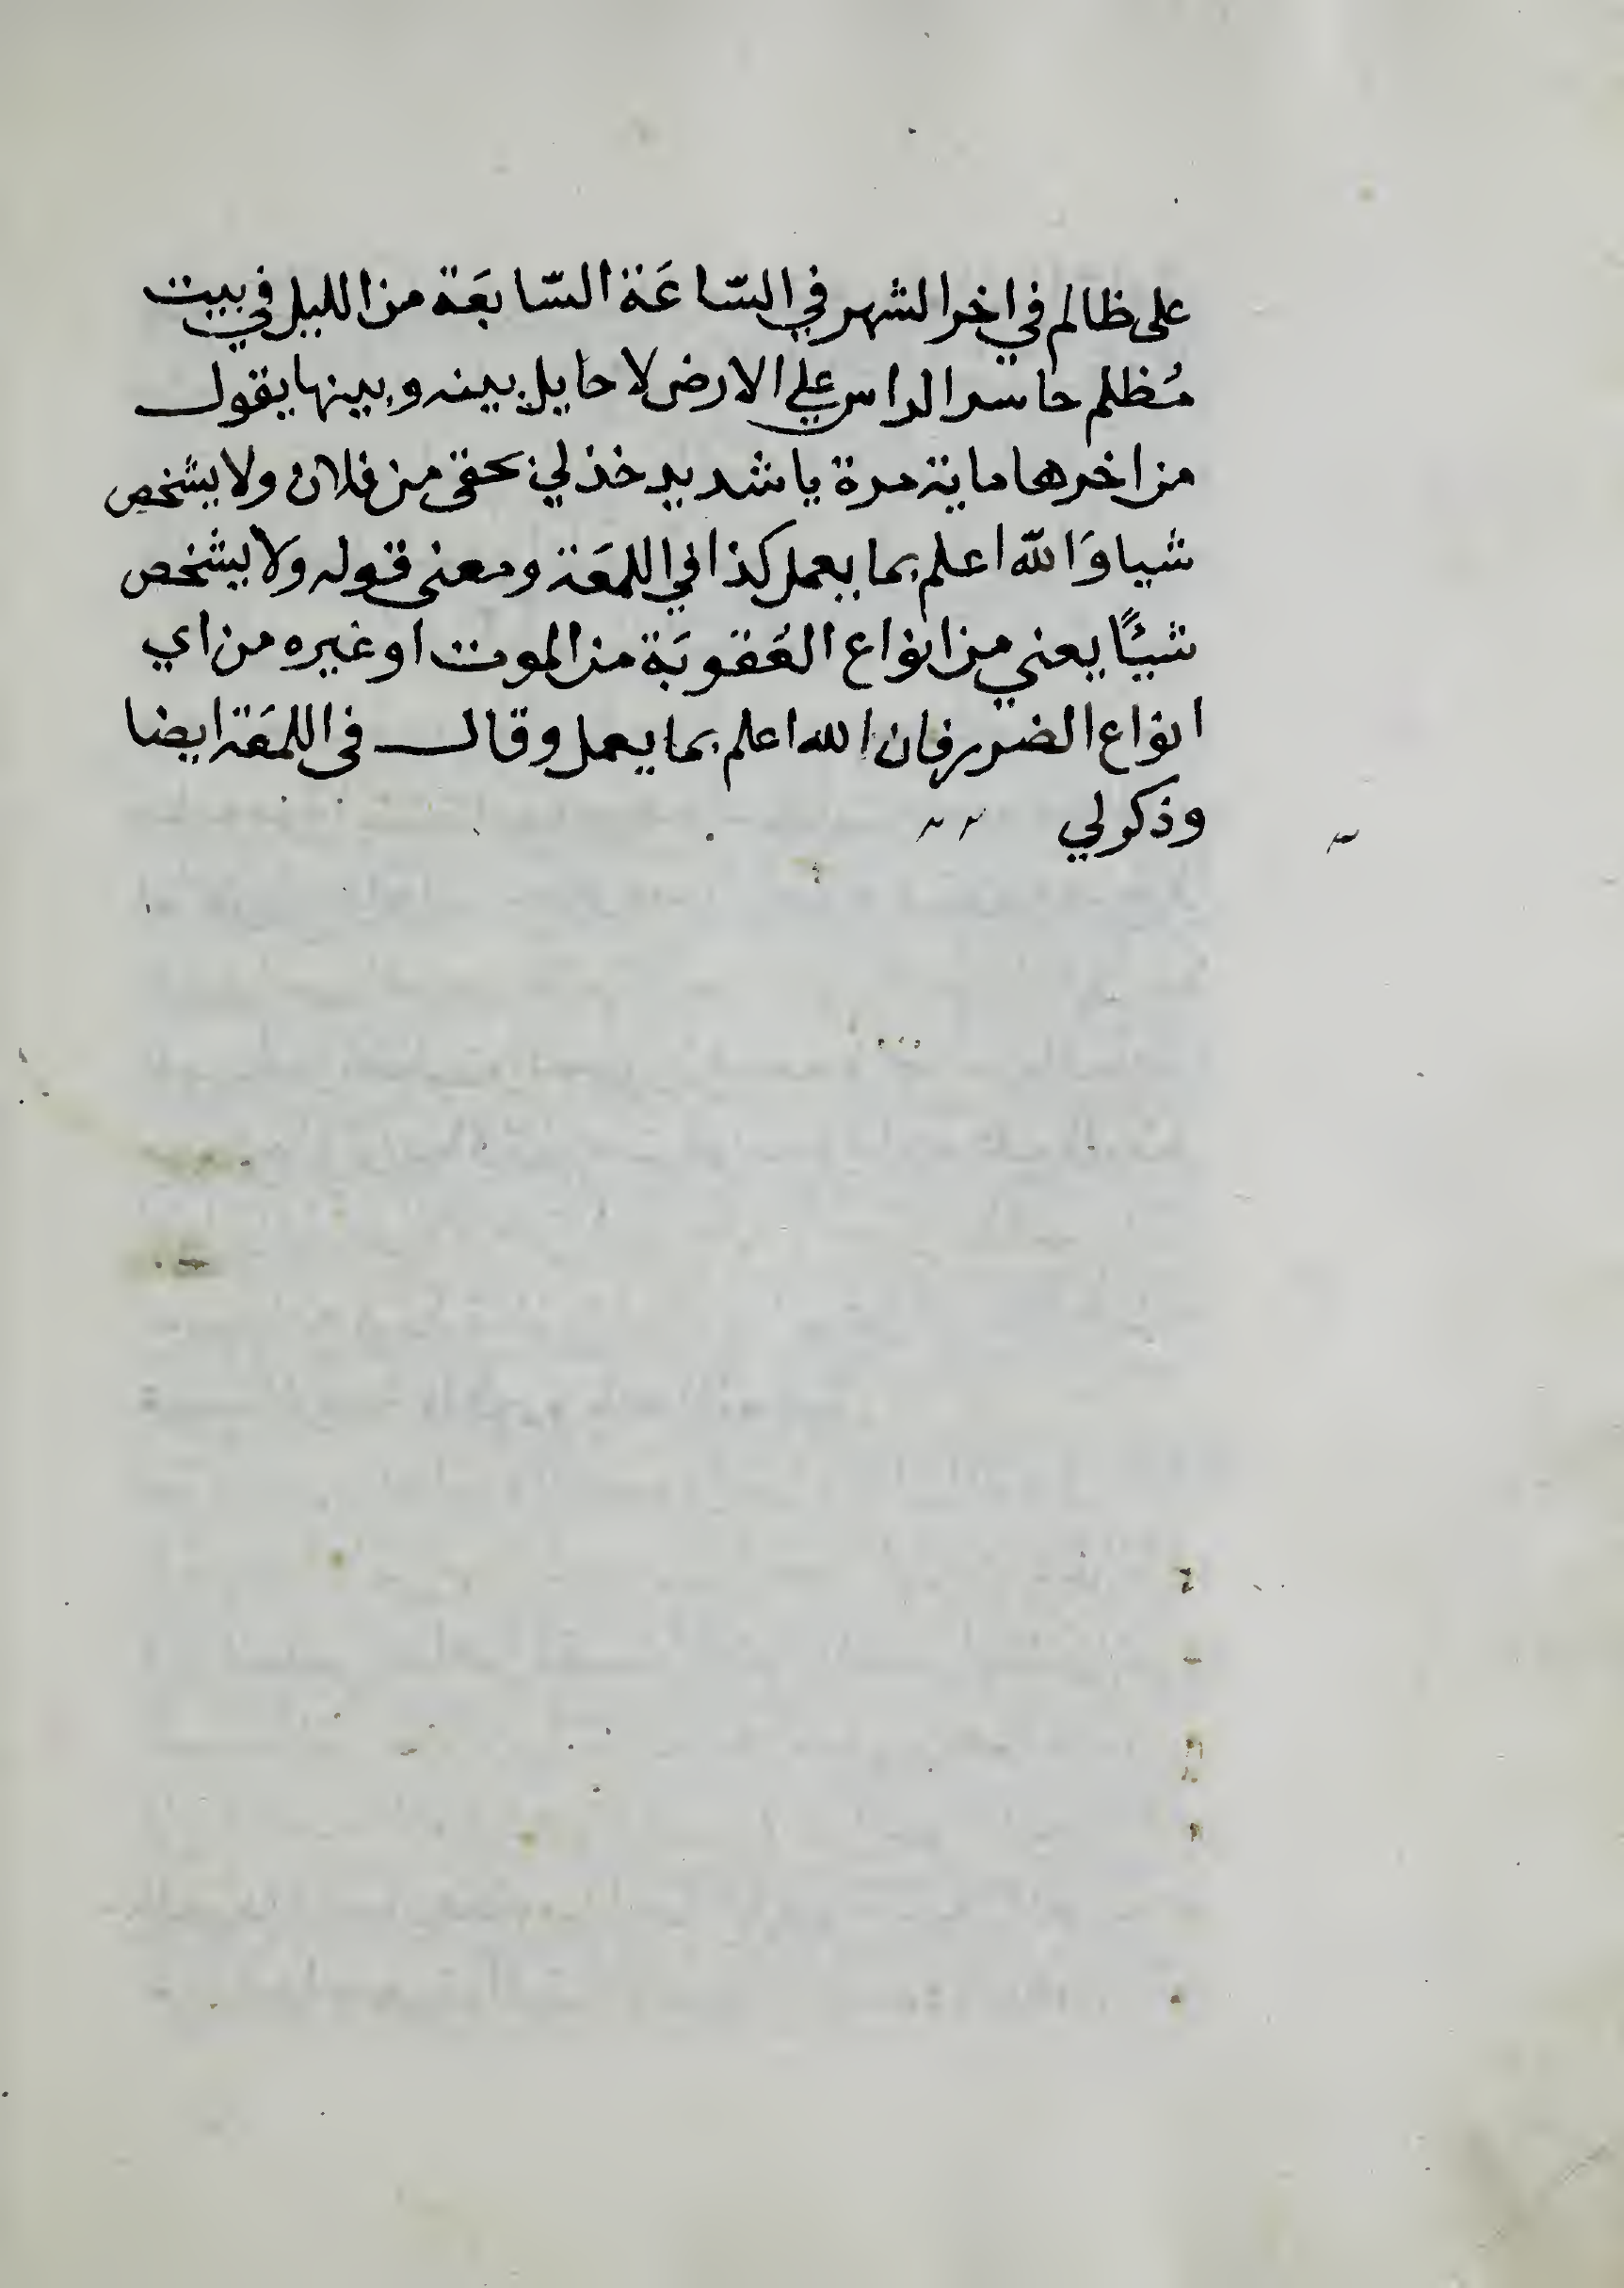 على ظالم في اخر الشهر في السّاعَة السّابعَة من الليل في بيت
مُظلم حاسر الراس علي الارض لا حايل بينه وبينها يقول
من اخرها ماية مرة يا شديد خذ لي بحقى من فلان ولا يشخص
شيا وَالله اعلم بما يعمل كذا في اللمعَة ومعنى قوله وَلا يشخص
شيئًا يعني من انواع العُقوبَة من الموت او غيره من اي
انواع الضرر فان الله اعلم بما يعمل وقال فى اللمعَة ايضا
وذكر لي